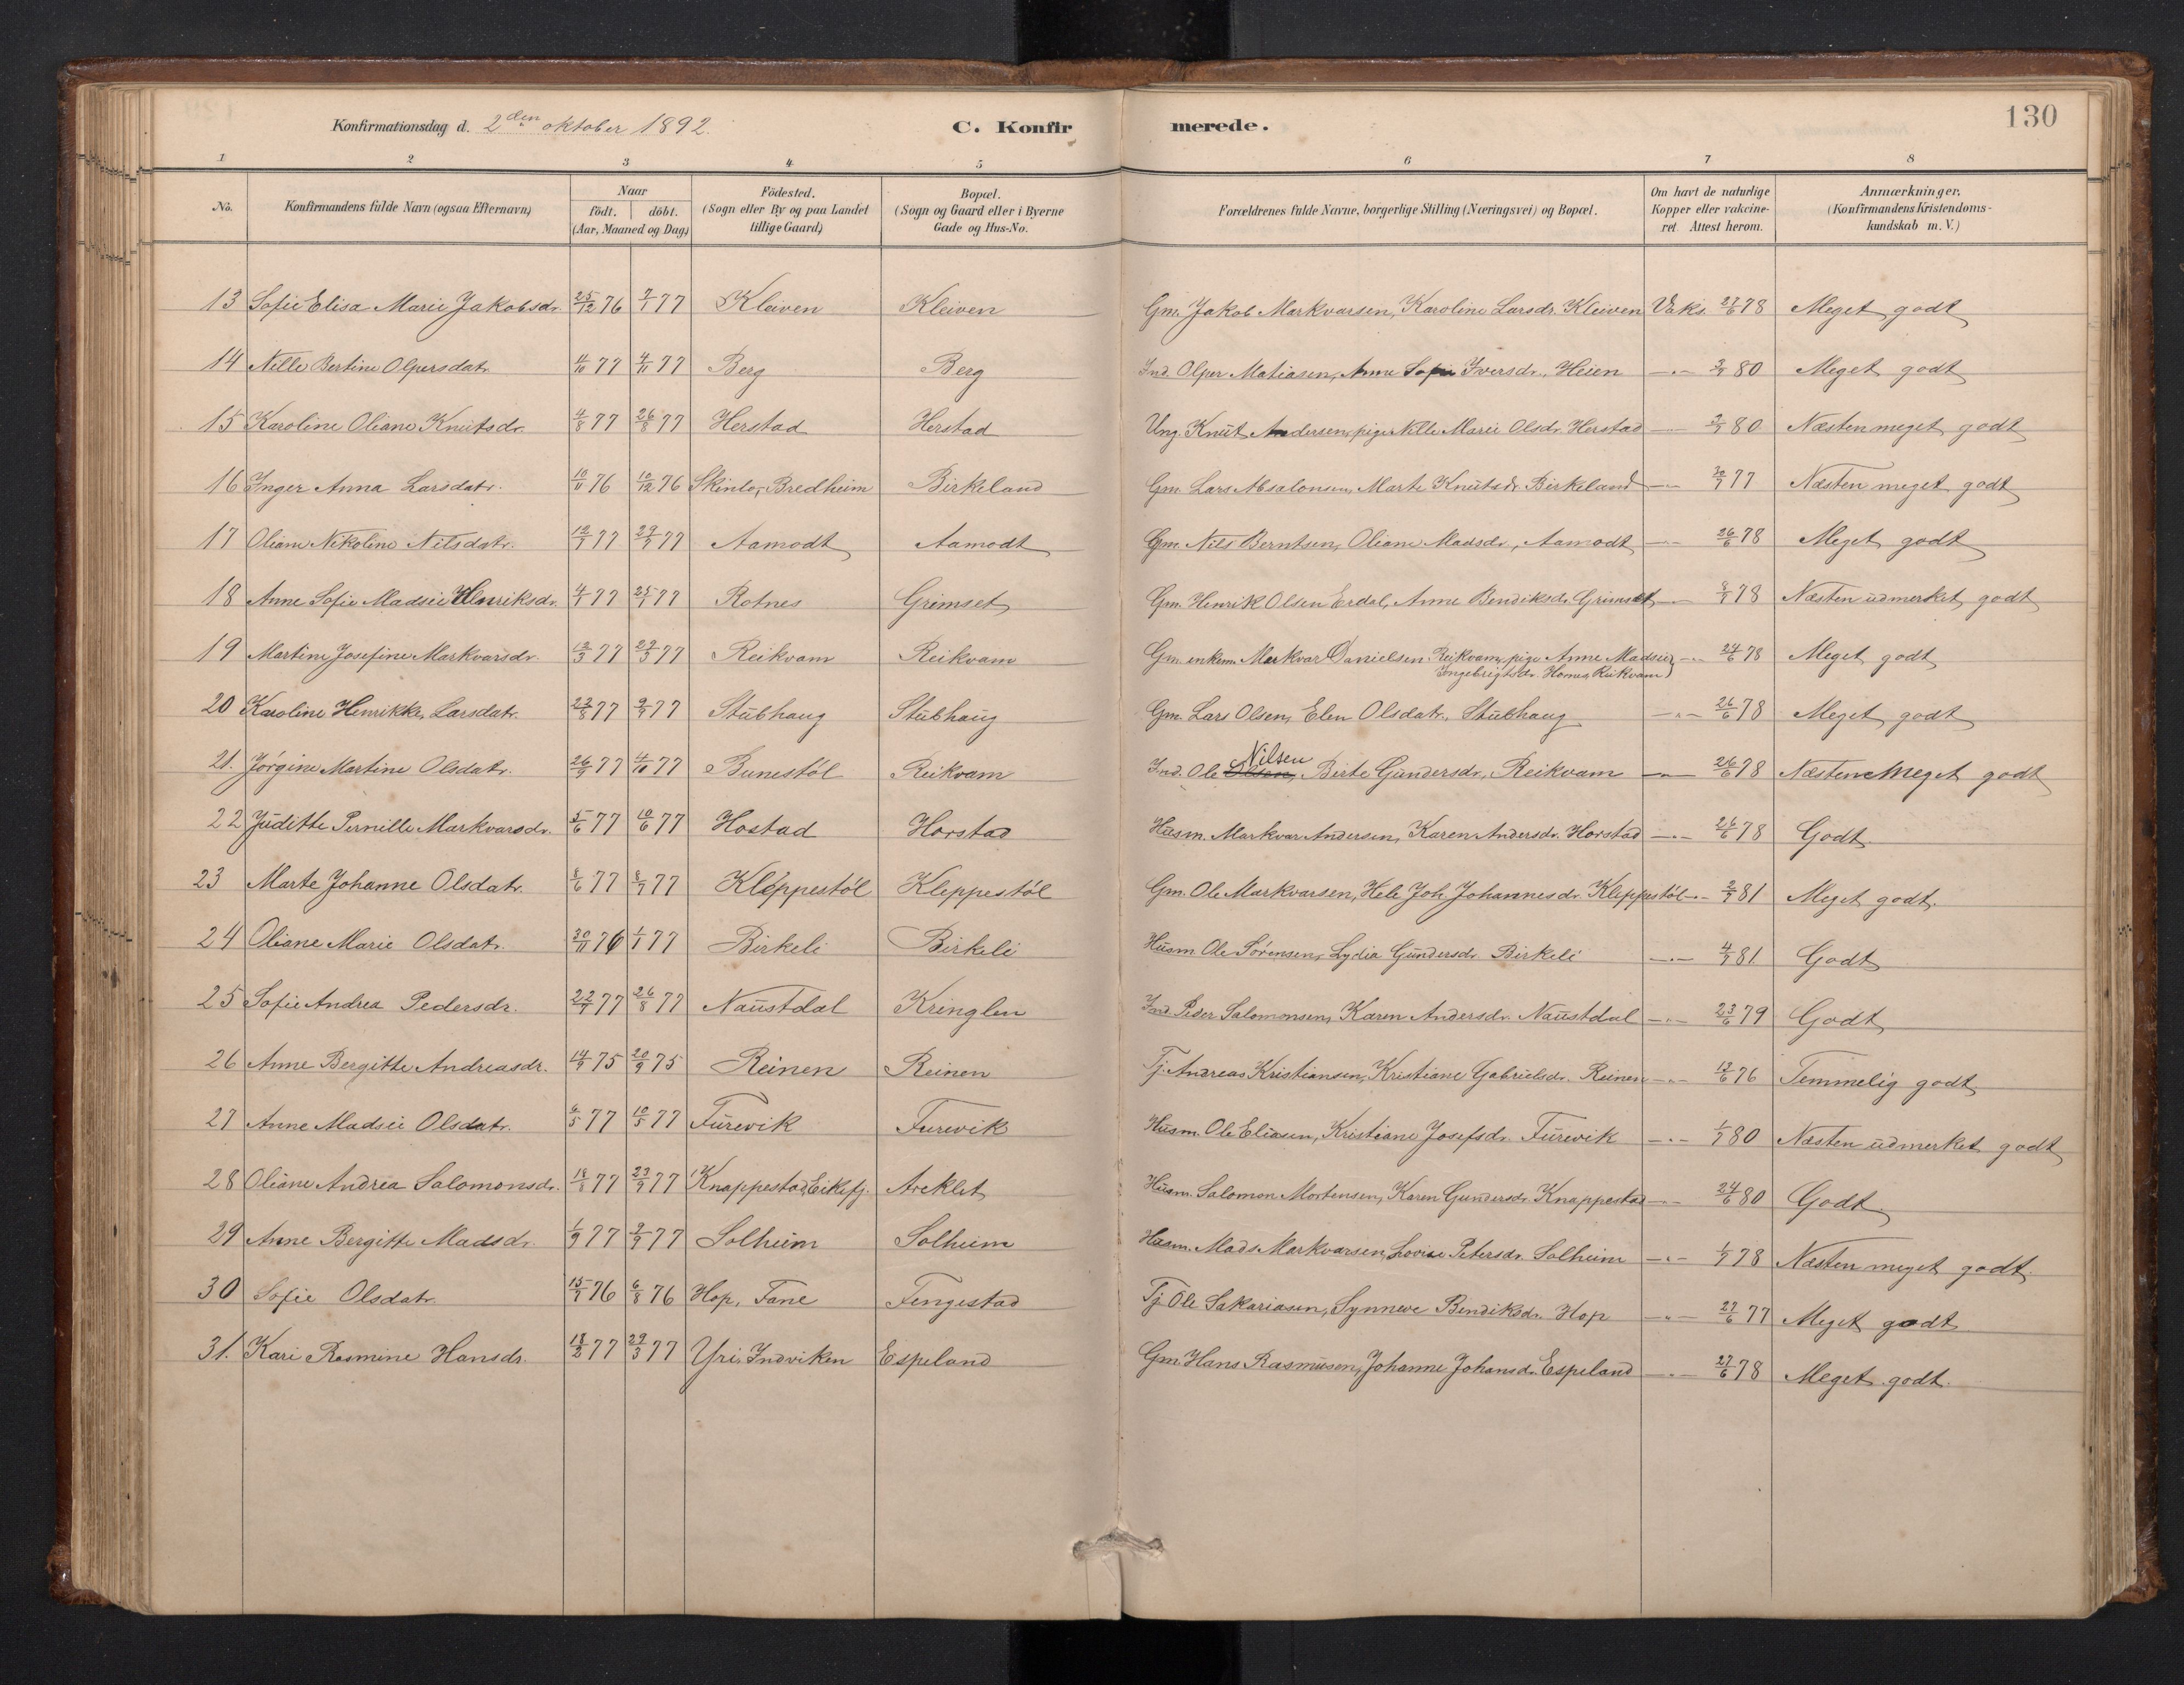 130
Konfirmationsdag d. 2den oktober 1892. C. Konfirmerede.
1 2 3 4 5 6 7 8
No. Konfirmandens fulde Navn (ogsaa Efternavn) Naar födt. döbt. (Aar, Maaned og Dag) Födested. (Sogn eller By og paa Landet tillige Gaard) Bopæl. (Sogn og Gaard eller i Byerne Gade og Hus-No. Forældrenes fulde Navne, borgerlige Stilling (Næringsvei) og Bopæl. Om havt de naturlige Kopper eller vakcineret. Attest herom. Anmærkninger. (Konfirmandens Kristendomskundskab m. V.)
13 Sofie Elisa Marie Jakobsdr. 25/12 76 7/1 77 Kleiven Kleiven Gm. Jakob Markvarsen, Karoline Larsdr. Kleiven Vaks. 27/6 78 Meget godt
14 Nille Bertine Olpersdatr. 4/10 77 4/11 77 Berg Berg Ind. Olper Matiasen, Anne Sofie Iversdr., Heien —"— 2/7 80 Meget godt
15 Karoline Oliane Knutsdr. 4/8 77 26/8 77 Herstad Herstad Ung. Knut Andersen, pige Nille Marie Olsdr. Herstad —"— 2/7 80 Næsten meget godt
16 Inger Anna Larsdatr. 10/11 76 10/12 76 Skinlo, Bredheim Birkeland Gm. Lars Absalonsen, Marte Knutsdr. Birkeland —"— 20/7 77 Næsten meget godt
17 Oliane Nikoline Nilsdatr. 12/7 77 29/7 77 Aamodt Aamodt Gm. Nils Berntsen, Oliane Madsdr., Aamodt —"— 26/6 78 Meget godt
18 Anne Sofie Madsie Henriksdr. 4/1 77 25/1 77 Rotnes Grimset Gm. Henrik Olsen Erdal, Anne Bendiksdr. Grimset —"— 8/7 78 Næsten udmerket godt
19 Martine Josefine Markvarsdr. 12/3 77 27/3 77 Reikvam Reikvam Gm. enkem. Markvar Danielsen Reikvam, pige Anne Madsie —"— 27/6 78 Meget godt
Ingebrigtsdr. Hornes, Reikvam)
20 Karoline Henrikke Larsdatr. 23/8 77 9/9 77 Stubhaug Stubhaug Gm. Lars Olsen, Elen Olsdatr., Stubhaug —"— 26/6 78 Meget godt
21. Jørgine Martine Olsdatr. 26/9 77 4/10 77 Bunestöl Reikvam Ind. Ole Olsen Nilsen, Birte Gundersdr., Reikvam —"— 26/6 78 Næsten Meget godt
22 Juditte Pernille Markvarsdr. 5/6 77 10/6 77 Hostad Horstad Husm. Markvar Andersen, Karen Andersdr. Horstad —"— 26/6 78 Godt.
23 Marte Johanne Olsdatr. 8/6 77 8/7 77 Kleppestöl Kleppestöl Gm. Ole Markvarsen, Hele Joh. Johannesdr. Kleppestöl —"— 2/7 81 Meget godt.
24 Oliane Marie Olsdatr. 30/11 76 1/1 77 Birkeli Birkeli Husm. Ole Sørensen, Lydia Gundersdr. Birkeli —"— 4/7 81 Godt
25 Sofie Andrea Pedersdr. 22/7 77 26/8 77 Naustdal Kringlen Ind. Peder Salomonsen, Karen Andersdr. Naustdal —"— 23/6 79 Godt
26 Anne Bergitte Andreasdr. 14/9 75 20/9 75 Reinen Reinen Tj. Andreas Kristiansen, Kristiane Gabrielsdr. Reinen —"— 12/6 76 Temmelig godt
27 Anne Madsie Olsdatr. 6/5 77 10/5 77 Furevik Furevik Husm. Ole Eliasen, Kristiane Josefsdr. Furevik —"— 1/7 80 Næsten udmerket godt
28 Oliane Andrea Salomonsdr. 18/8 77 23/9 77 Knappestad, Eikefj. Areklet Husm. Salomon Mortensen, Karen Gundersdr. Knappestad —"— 24/6 80 Godt.
29 Anne Bergitte Madsdr. 1/9 77 2/9 77 Solheim Solheim Husm. Mads Markvarsen, Lovise Petersdr. Solheim —"— 1/7 78 Næsten meget godt.
30 Sofie Olsdatr. 15/7 76 6/8 76 Hop, Fane Fengestad Tj. Ole Sakariasen, Synneve Bendiksdr. Hop —"— 27/6 77 Meget godt
31. Kari Rasmine Hansdr. 18/2 77 29/3 77 Yri, Indviken Espeland Gm. Hans Rasmusen, Johanne Johansdr. Espeland —"— 27/6 78 Meget godt.